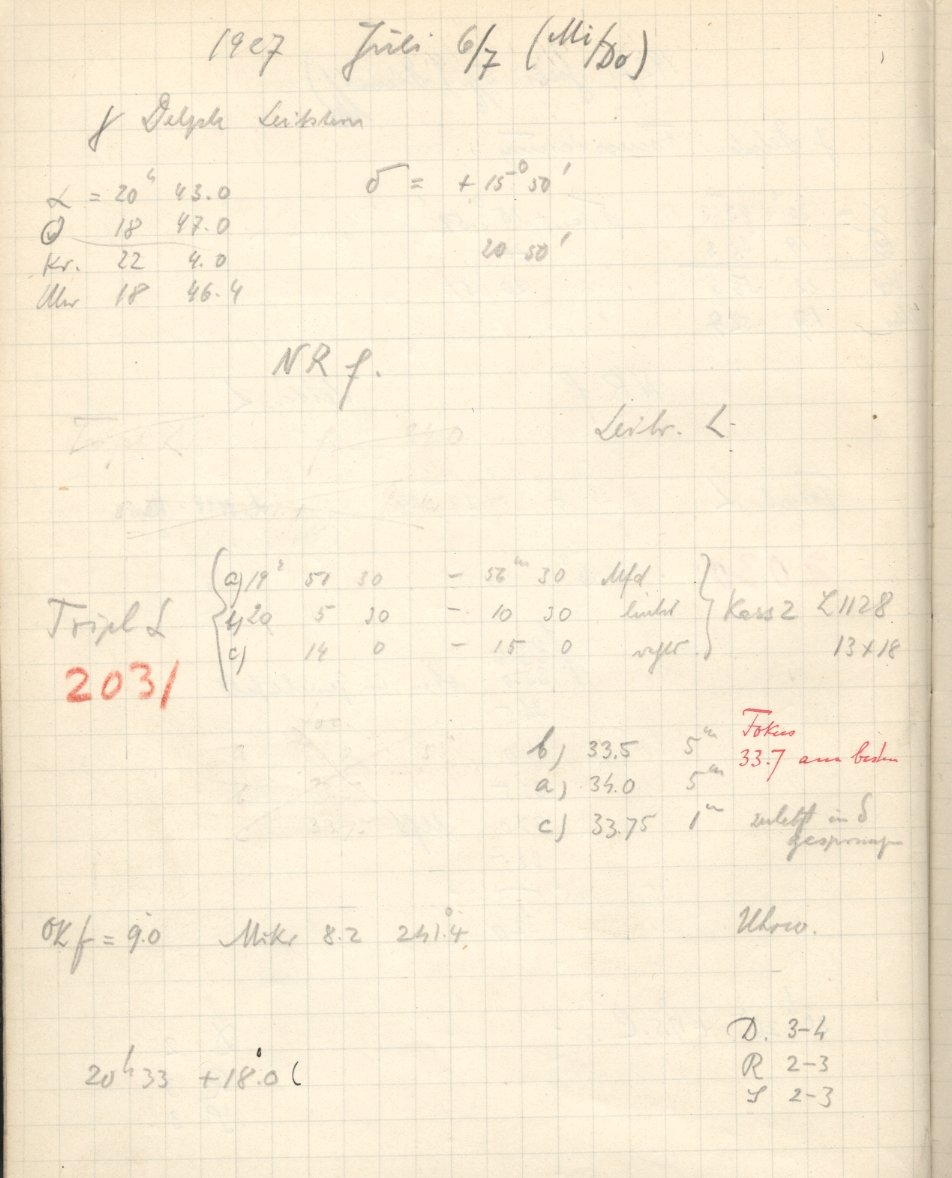 1927 Juli 6/7 (Mi/Do)
γ Delph Leitstern
α = 20ʰ 43.0 δ = +15° 50'
18 47.0 20 50'
Kr. 22 4.0
Uhr 18 46.4
NR f.
Leitr. L
Tripl L
a) 19 51 30 – 56ᵐ 30 Mfd
b) 20 5 30 – 10 30 links
c) 14 0 – 15 0 rechts
Kass 2 L 1128
13×18
2031
b) 33.5 5ᵐ
a) 34.0 5ᵐ
c) 33.75 1ᵐ zuletzt in δ gesprungen
Fokus
33.7 am besten
OK f = 9.0 Mikr 8.2 241°.4 Uhrw.
20ʰ 33 +18°.0 (
D. 3–4
R 2–3
S 2–3